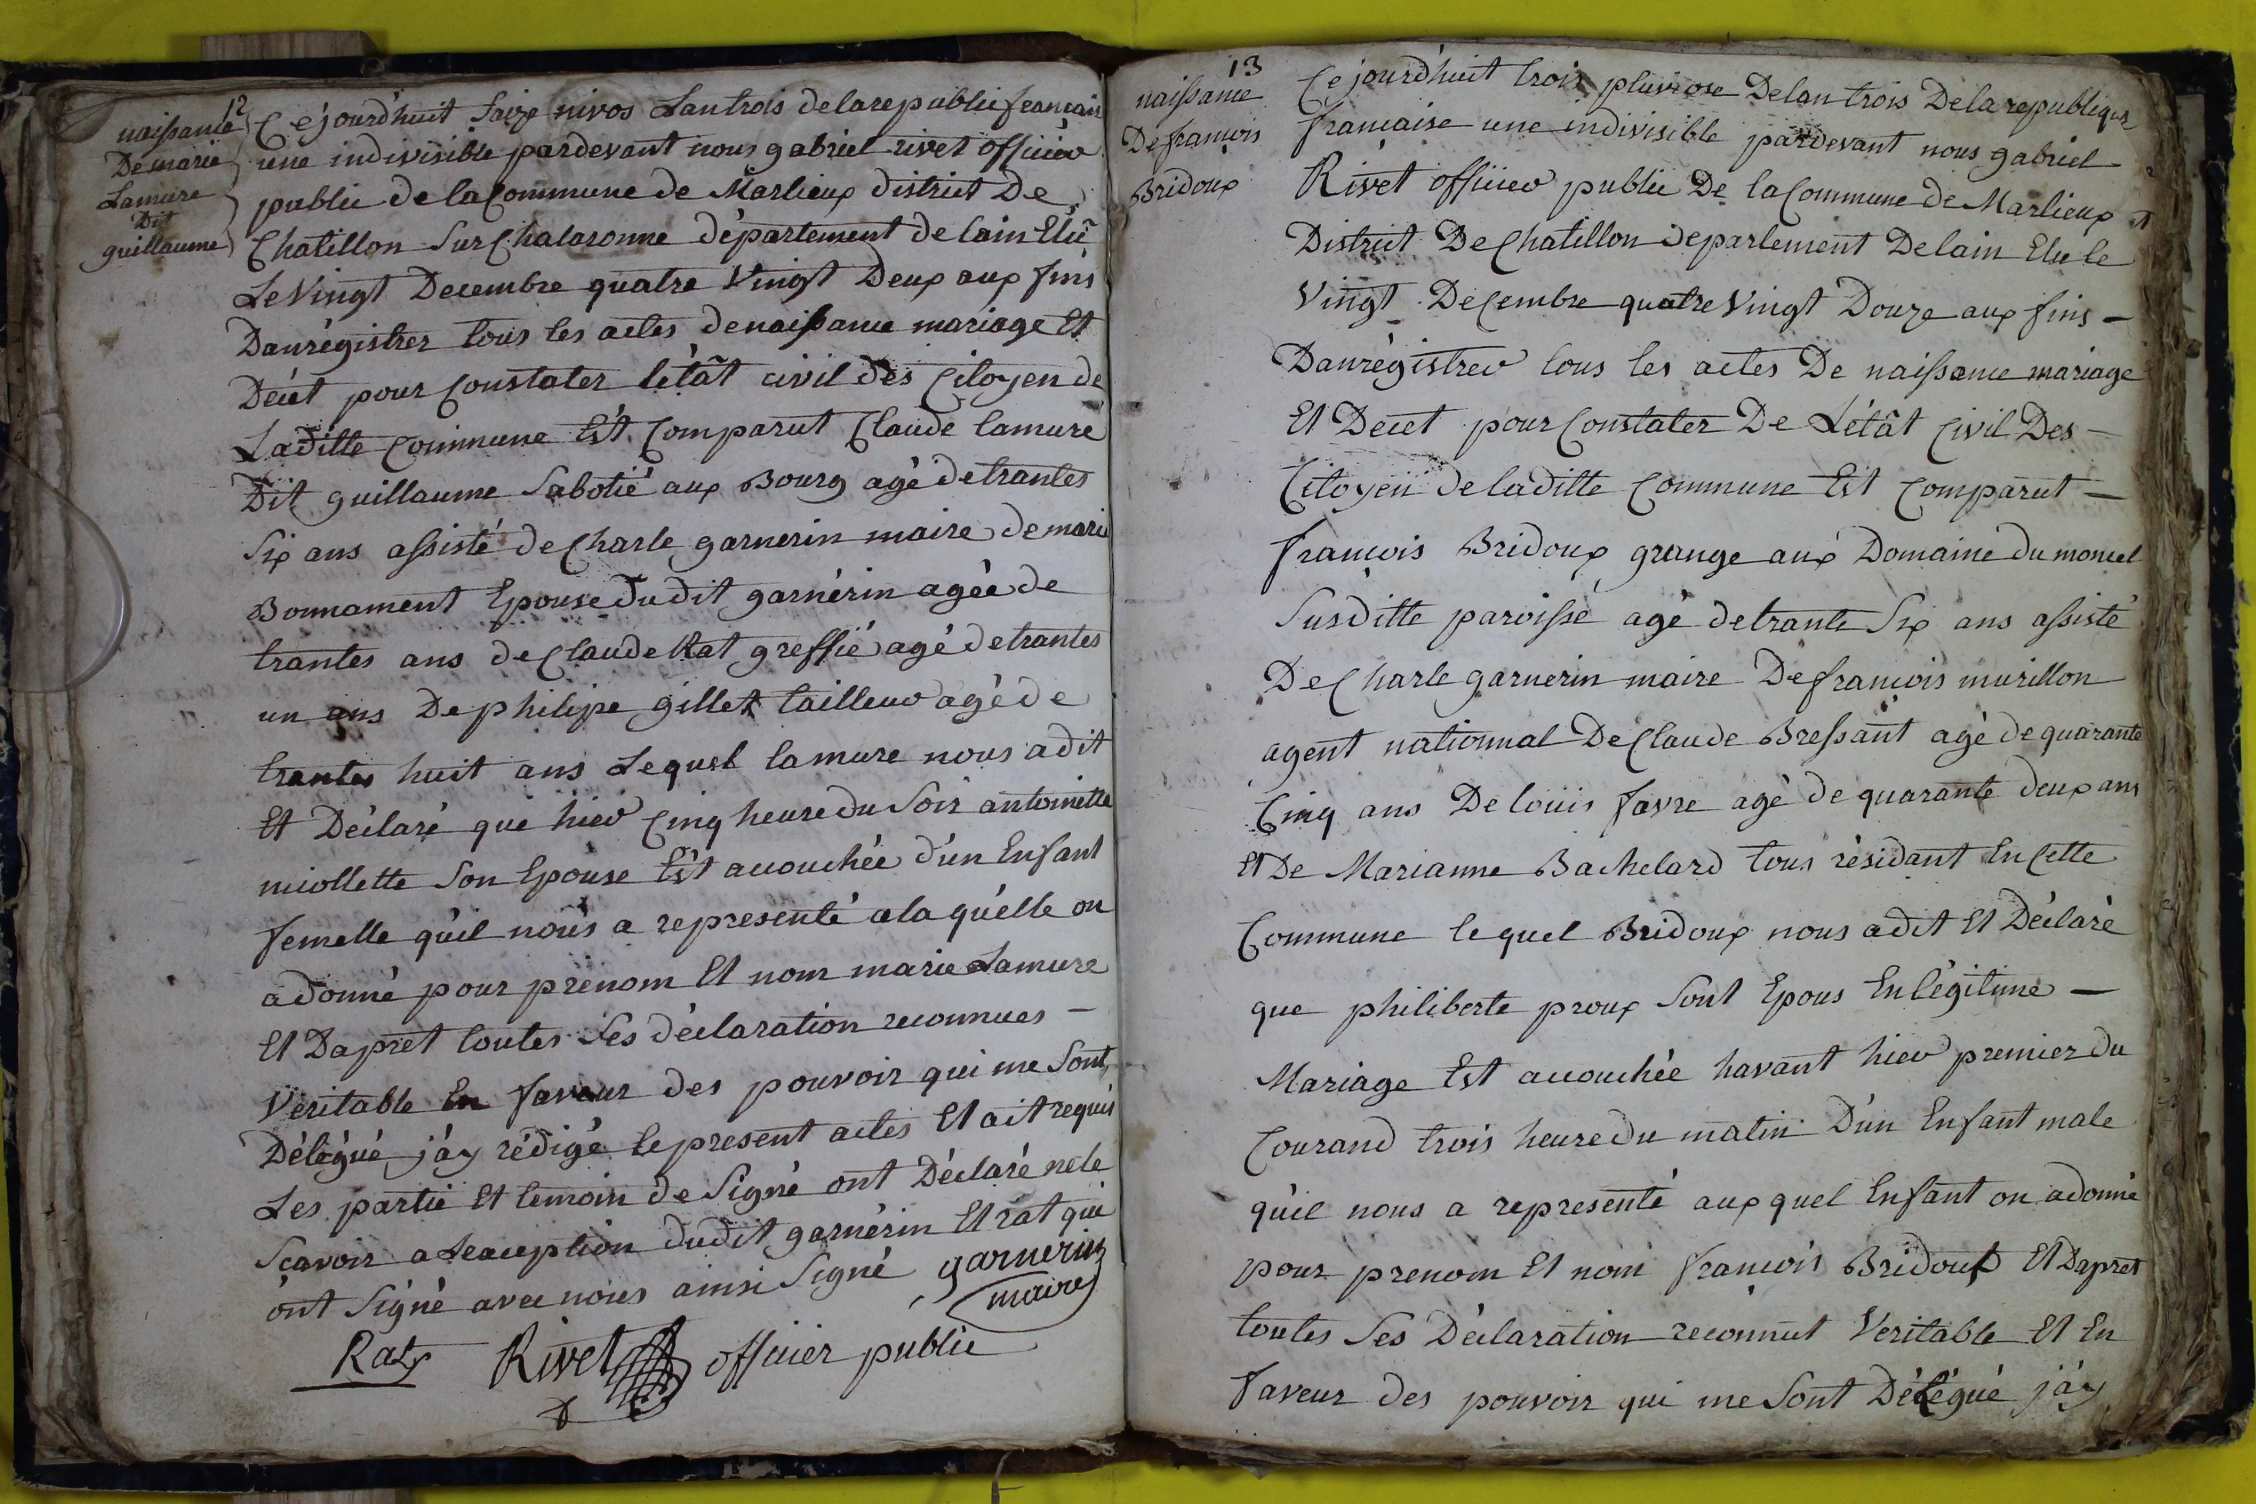 12
naissance
De marie
Lamure
Dit
guillaume
Cejourd'huit Saize nivos Lantrois delarepublic francais
une indivisible pardevant nous gabriel rivet officier
public de la Commune de Marlieux district De
Chatillon Sur Chalaronne département de lain Elu
Le Vingt Decembre quatre Vingt Deux aux fins
Danrégistrer tous les actes denaissance mariage Et
Décet pour Constater létât civil des Citoyen de
Laditte Commune Est Comparut Claude lamure
Dit guillaume Sabotié aux Bourg agé detrantes
Six ans assisté de Charle garnerin maire de marie
Bonnament Epouse dudit garnérin agée de
trantes ans de Claude Rat greffié agé detrantes
un ans De philipe gillet tailleur agé de
trantes huit ans Lequel lamure nous adit
Et Déclaré que hier Cinq heure du Soir antoinette
miollette Son Epouse Est acouchée d'un Enfant
femelle qu'il nous a representé ala quélle on
adonné pour prenom Et nom marie Lamure
Et Dapret toutes Ses déclaration reconnues —
Veritable En faveur des pouvoir qui me Sont
Délégué j'ay rédigé le present actes Et ait requis
Les partie Et temoin de Signé ont Déclaré ne le
Scavoir a Lexception dudit garnérin Et rat qui
ont Signé avec nous ainsi Signé garnerin
maire
Rat Rivet officier public
13
naissance
De francois
Bridoux
Cejourd'huit trois pluviose Delan trois Delarepublique
francaise une indivisible pardevant nous gabriel
Rivet officier public De la Commune de Marlieux
District De Chatillon departement Delain Elu le
Vingt Decembre quatre Vingt Douze aux fins —
Danrégistrer tous les actes De naissance mariage
Et Decet pour Constater De Létât Civil Des —
Citoyen de laditte Commune Est Comparut —
francois Bridoux grange aux Domaine du moncel
Susditte paroisse agé detrante Six ans assisté
De Charle garnerin maire De francois murillon
agent nationnal De Claude Bressant agé de quarante
Cinq ans De louis favre agé de quarante deux ans
Et De Marianne Bachelard tous résidant En Cette
Commune lequel Bridoux nous adit Et Déclaré
que philiberte proux Sont Epous En légitime —
Mariage Est acouchée havant hier premier du
Courand trois heure du matin D'un Enfant male
qu'il nous a representé aux quel Enfant on adonné
pour prenom Et nom francois Bridoux Et Dapret
toutes Ses Déclaration reconnut Veritable Et En
faveur des pouvoir qui me Sont Délégué j'ay